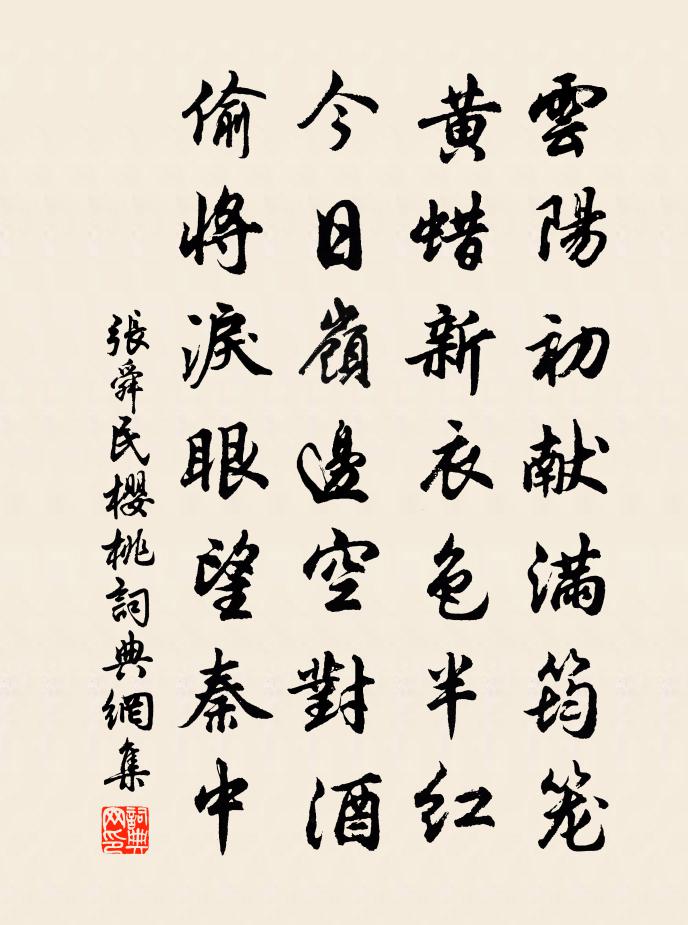 雲陽初献满筠笼
黄蜡新衣色半红
今日嶺邊空對酒
偷将淚眼望秦中
張舜民櫻桃詞典網集
詞典网印